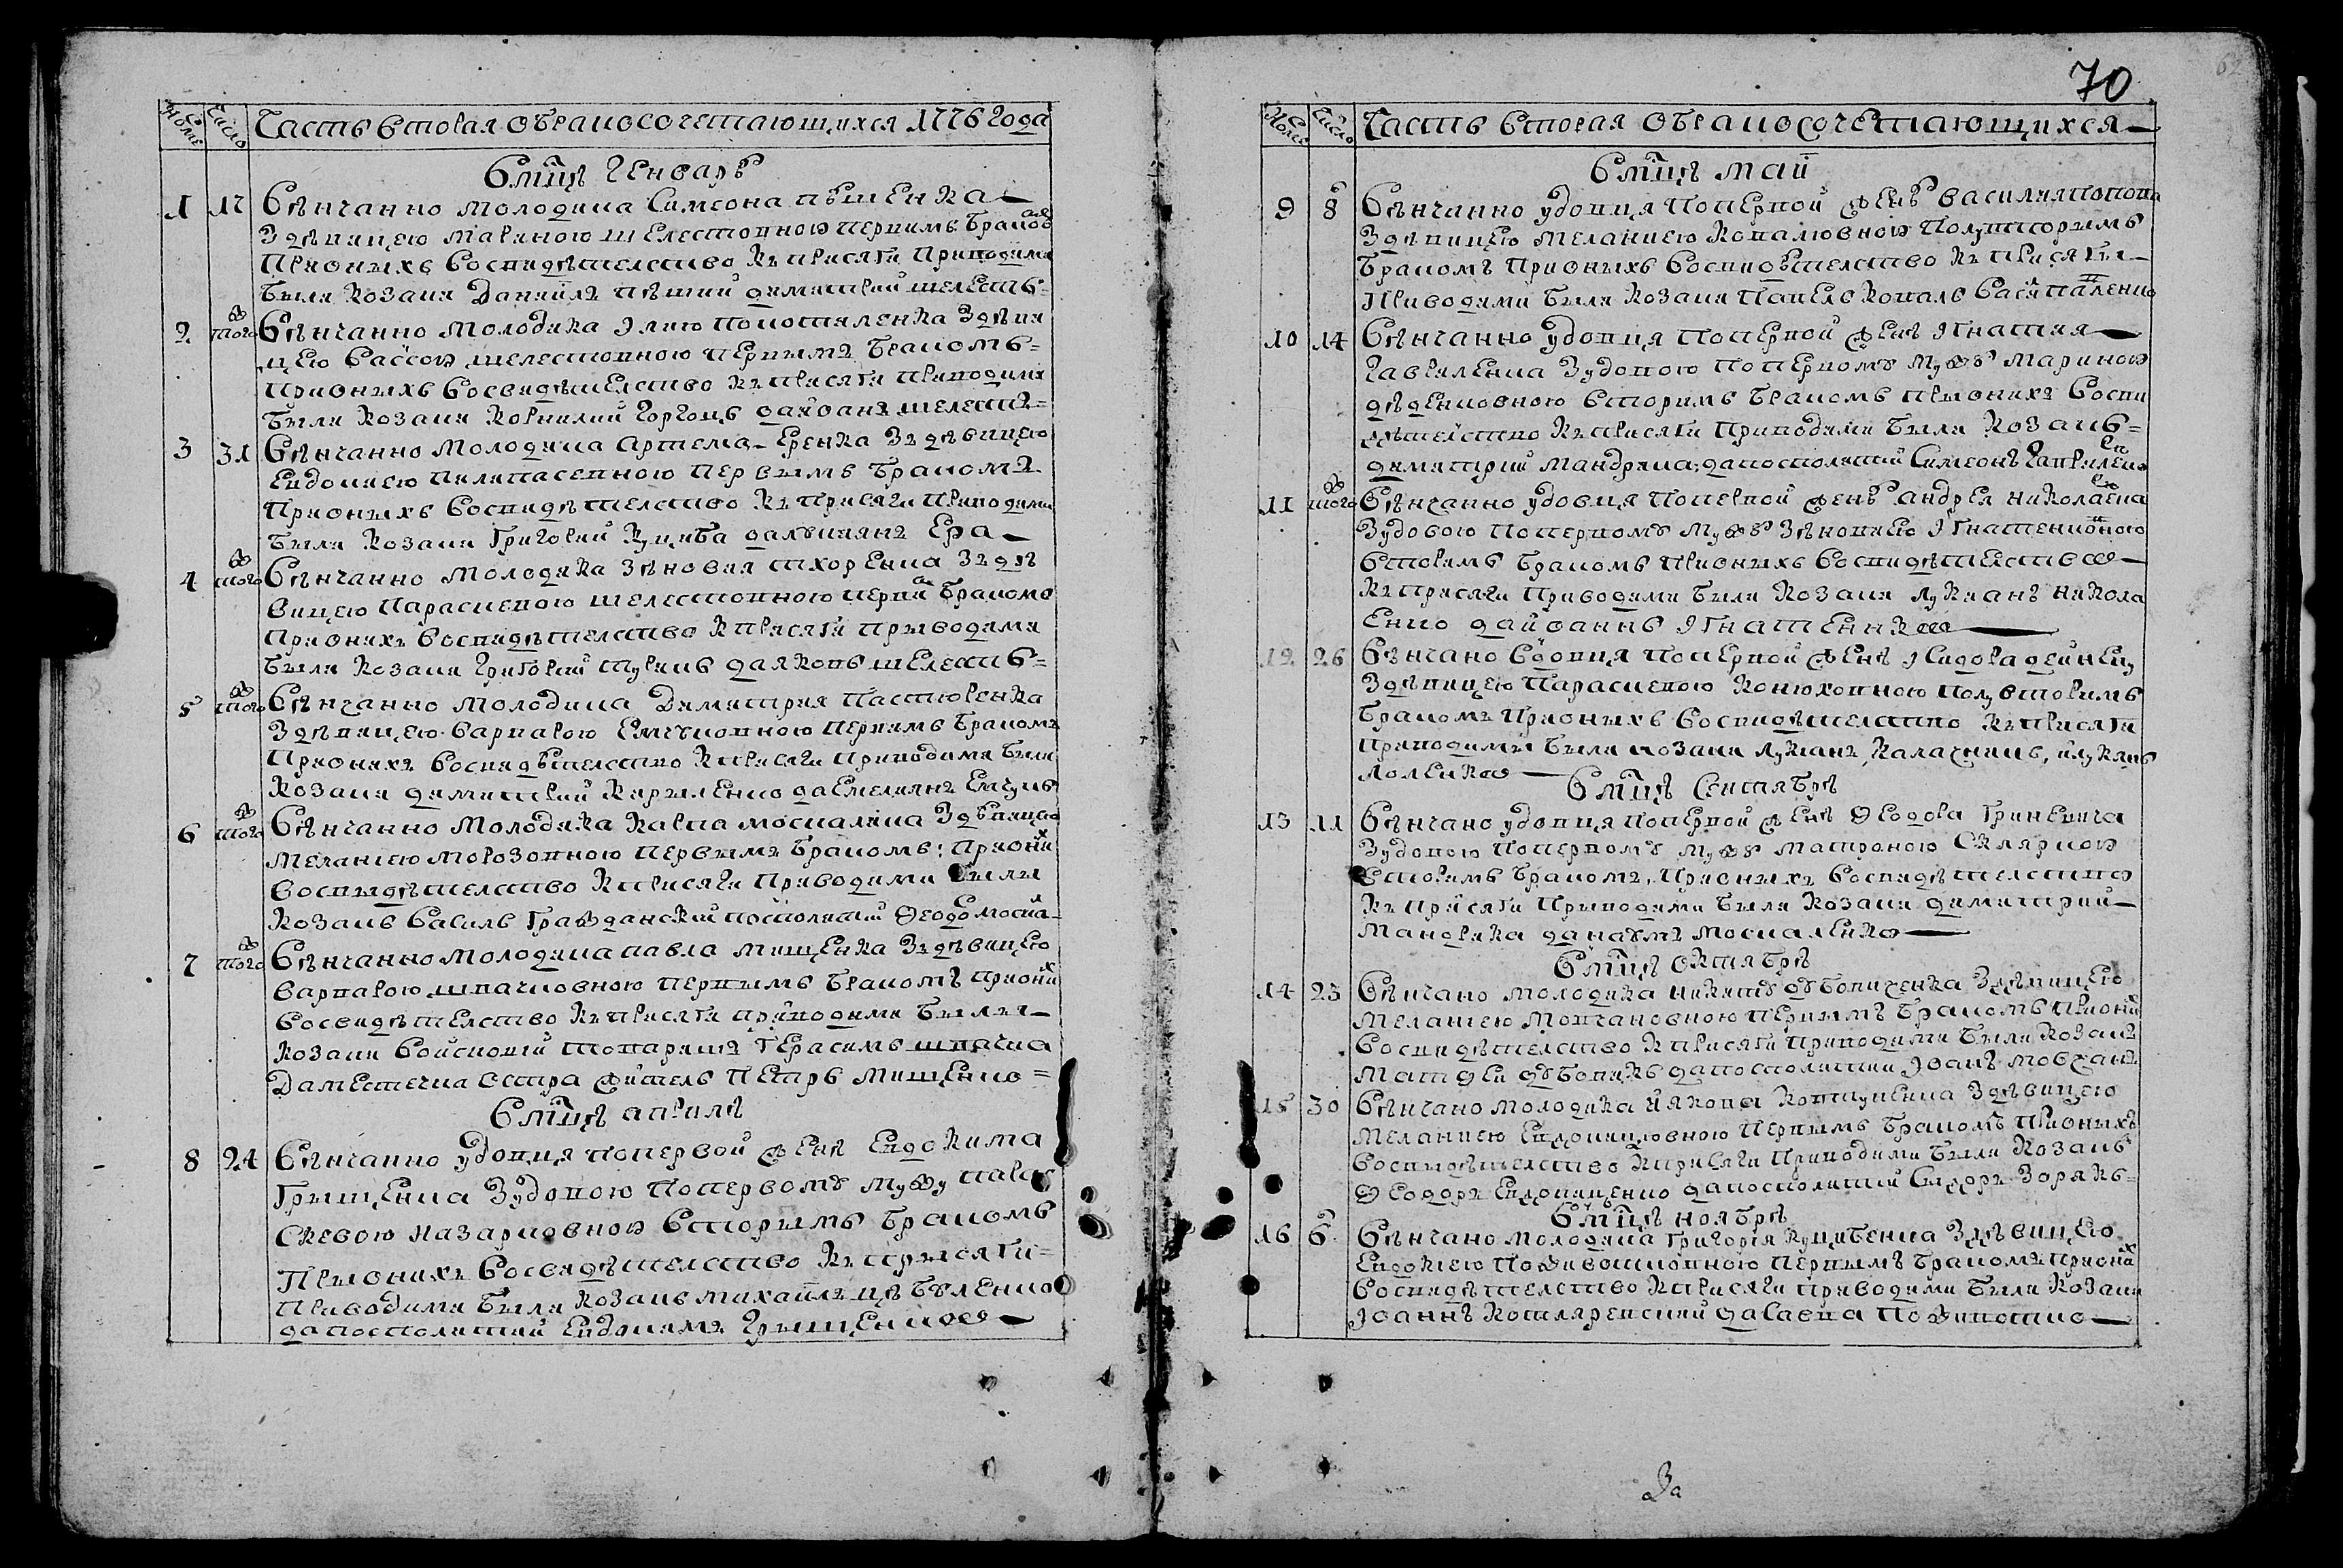 70
Номе Число Часть вторая о бракосочетающихся 1776 года
В мцѣ Генварѣ
1 17 Вѣнчанно молодика Симеона пѣшенка
З дѣвицею Мариною Шелестовною первимъ бракомъ
При оныхъ во свидѣтелство къ присяги приводими
были козаки Даниилъ Пѣший Димитрий Шелестъ
2 того Вѣнчанно молодика Илию Покоталенка З дѣви
цею Вассою Шелестовною первымъ бракомъ
При оныхъ во свидѣтелство къ присяги приводими
были козаки Корнилий Горгоцъ да Иоанъ Шелестъ
3 31 Вѣнчанно молодика Артема Еренка Зъ дѣвицею
Евдокиею Пилипасевною первымъ бракомъ
При оныхъ во свидѣтелство къ присяги приводими
были козаки Григорий Куцуба да Лукиянъ Ера
4 того Вѣнчанно молодика Зѣновия Тхоренка Зъ дѣ
вицею Параскевою Шелестовною первим бракомъ
При онихъ во свидѣтелство к присяги приводими
были козаки Григорий Турикъ да Яковъ Шелестъ
5 того Вѣнчанно молодика Димитрия Пастюренка
З дѣвицею Варварою Емчиковною первимъ бракомъ
При онихъ во свидѣтелство к присяги приводими были
козаки Димитрий Кириленко да Емелиянъ Емчукъ
6 того Вѣнчанно молодика Карпа Москалика З дѣвицею
Меланиею Морозовною первымъ бракомъ: При оних
во свидѣтелство к присяги приводими были
козакъ Василь Гражданский посполитий Феодо Моска
7 того Вѣнчанно молодика Павла Мищенка Зъ дѣвицею
Варварою Шпачковною первымъ бракомъ При оних
во свидѣтелство къ присяги приводими были
козаки войсковий товаришъ Герасимъ Шпачка
Да местечка Остра житель Петръ Мищенко
В мцѣ априлѣ
8 24 Вѣнчанно удовця по первой женѣ Евдокима
Грищенка З удовою по первому мужу Пара
скевою Назарковною вторымъ бракомъ
При онихъ во свидѣтелство къ присяги
приводими были козакъ Михаилъ Цѣбуленко
да посполитий Евдокимъ Грищенко
Номе Число Часть вторая о бракосочетающихся
В мцѣ май
9 8 Вѣнчанно удовця по первой женѣ Василия Попова
З дѣвицею Меланиею Ковалювною полуторымъ
бракомъ При оныхъ во свидѣтелство къ присяги
приводими были козаки Павелъ Коваль Васил Паленко
10 14 Вѣнчанно удовця по первой женѣ Игнатия
Гавриленка З удовою по первому мужѣ Мариною
Дѣденковною вторимъ бракомъ при онихъ во сви
дѣтелство къ присяги приводими были козакъ
Димитрий Мандрика, да посполитий Симеонъ Гавриленко
11 того Вѣнчанно удовця по первой женѣ Андрея Николаенка
З удовою по первому мужѣ Зѣновиею Игнатенковною
вторимъ бракомъ При оныхъ во свидѣтелство
къ присяги приводими были козаки Лукианъ Никола
енко да Иоаннъ Игнатенко
12 26 Вѣнчано вдовця по первой женѣ Исидора Дейнеку
З дѣвицею Параскевою Конюховною полувторимъ
бракомъ При оныхъ во свидѣтелство къ присяги
приводими были козаки Лукianъ Калачникъ, и Лукянъ
Лоленко
В мцѣ Сентябрѣ
13 11 Вѣнчано удовця по первой женѣ Феодора Гриневича
З удовою по первому мужѣ Матроною Склярною
вторимъ бракомъ, При оныхъ во свидѣтелство
къ присяги приводими были козаки Димитрий
Мандрика да Наумъ Москаленко
В мцѣ Октябрѣ
14 23 Вѣнчано молодика Никиту Дубовиченка З дѣвицею
Меланиею Мовчановною первимъ бракомъ При оних
во свидѣтелство к присяги приводими были козакъ
Матфей Дубовикъ да посполитий Иоанъ Мовчанъ
15 30 Вѣнчано молодика Иякова Ковтуненка З дѣвицею
Меланиею Евдокицковною первымъ бракомъ При оныхъ
во свидѣтелство к присяги приводими были козакъ
Феодоръ Евдокиценко да посполитий Сидоръ Зорякъ
В мцѣ ноябрѣ
16 6 Вѣнчано молодика Григория Куцубенка З дѣвицею
Евдокиею Подживотковною первымъ бракомъ При оних
во свидѣтелство к присяги приводими были козаки
Иоаннъ Котляревский да Савва Подживотко
За